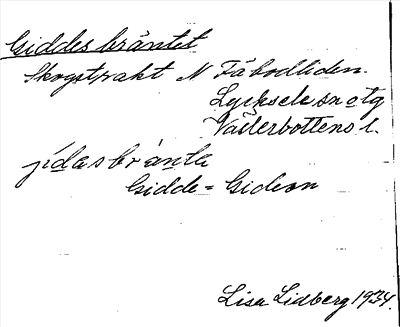 Giddesbräntet
Skogstrakt N Fäbodliden.
Lycksele sn o tg
Västerbottens l.
jídasbrànta
Gidde = Gideon
Lisa Lidberg 1934.